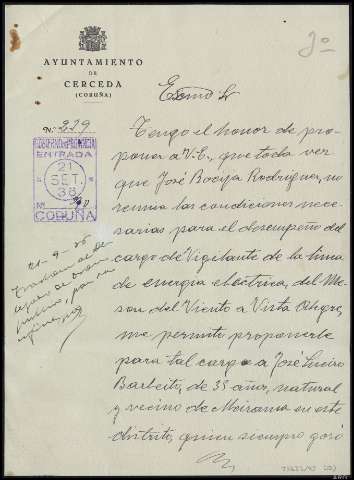 AYUNTAMIENTO
DE
CERCEDA
(CORUÑA)
Nº 339
Excmo Sr
GOBIERNO DE PROVINCIA
ENTRADA
21
SET.
36
Nº
CORUÑA
Tengo el honor de pro-
poner a V.E., que toda vez
que José Boeja Rodriguez, no
reunia las condiciones nece-
sarias para el desempeño del
cargo de Vigilante de la linea
de energia eléctrica, del Me-
son del Viento a Vista Alegre,
me permito proponerle
para tal cargo a José Lueiro
Barbeito, de 35 años, natural
y vecino de Meirama en este
distrito, quien siempre gozó